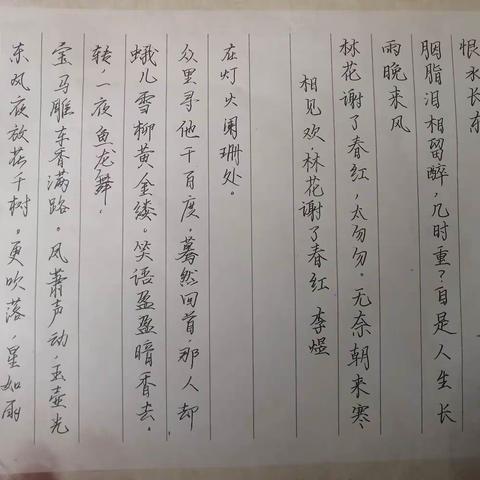 东风夜放花千树。更吹落,星如雨
宝马雕车香满路。凤萧声动,玉壶光
转,一夜鱼龙舞.
蛾儿雪柳黄金缕。笑语盈盈暗香去。
众里寻他千百度,蓦然回首,那人却
在灯火阑珊处。
相见欢.林花谢了春红 李煜
林花谢了春红,太匆匆。无奈朝来寒
雨晚来风
胭脂泪相留醉,几时重?自是人生长
恨水长东